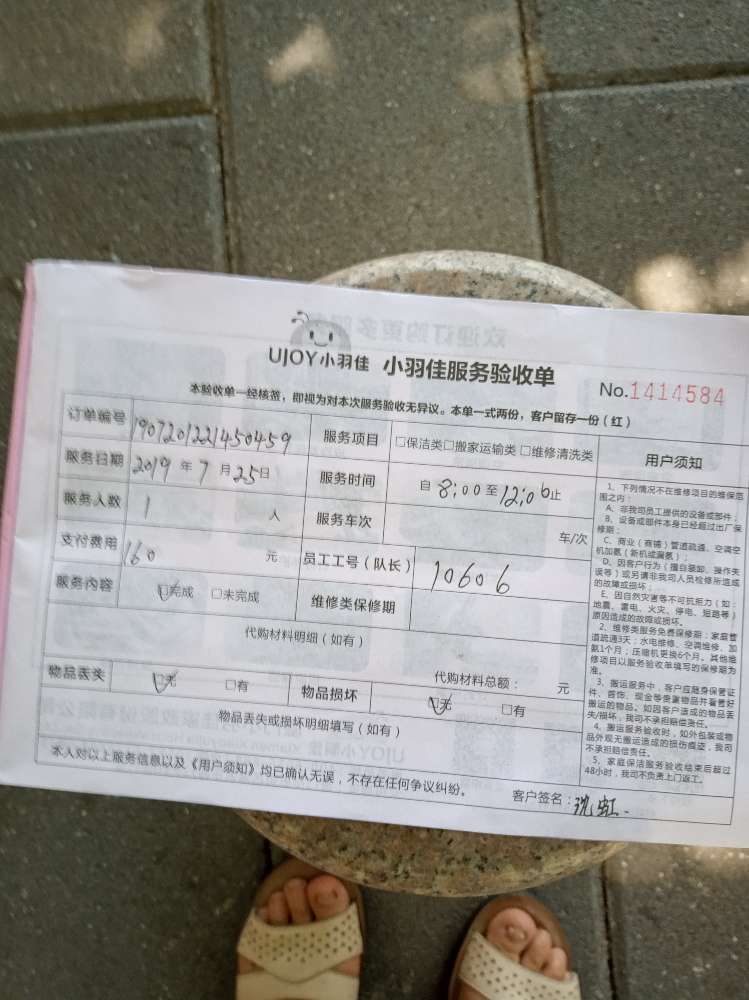 UJOY小羽佳 小羽佳服务验收单
No.1414584
本验收单一经核签，即视为对本次服务验收无异议。本单一式两份，客户留存一份（红）
订单编号 190720122145045９ 服务项目 □保洁类□搬家运输类 □维修清洗类
服务日期 2019 年 7 月 25日 服务时间 自 8:00 至 12:00 止
服务人数 1 人 服务车次 车/次
支付费用 160 元 员工工号（队长） 10606
服务内容 □完成 □未完成 维修类保修期
代购材料明细（如有）
代购材料总额： 元
物品丢失 □无 □有 物品损坏 □无 □有
物品丢失或损坏明细填写（如有）
本人对以上服务信息以及《用户须知》均已确认无误，不存在任何争议纠纷。 客户签名：沈虹.
用户须知
1、下列情况不在维修项目的维保范
围之内：
A、非我司员工提供的设备或部件；
B、设备或部件本身已经超过出厂保
修期；
C、商业（商铺）管道疏通、空调空
机加氨（新机或漏氨）；
D、因客户行为（擅自装卸、操作失
误等）或另请非我司人员检修所造成
的故障或损坏；
E、因自然灾害等不可抗拒力（如：
地震、雷电、火灾、停电、短路等）
原因造成的故障或损坏。
2、维修类服务免费保修期：家庭管
道疏通3天；水电维修、空调维修、加
氨1个月；压缩机更换6个月。其他维
修项目以服务验收单填写的保修期为
准。
3、搬运服务中，客户应随身保管证
件、首饰、现金等贵重物品并看管好
搬运的物品。如因客户造成的物品丢
失/损坏，我司不承担赔偿责任。
4、搬运服务验收时，如外包装或物
品外观无搬运造成的损伤痕迹，我司
不承担赔偿责任。
5、家庭保洁服务验收结束后超过
48小时，我司不负责上门返工。